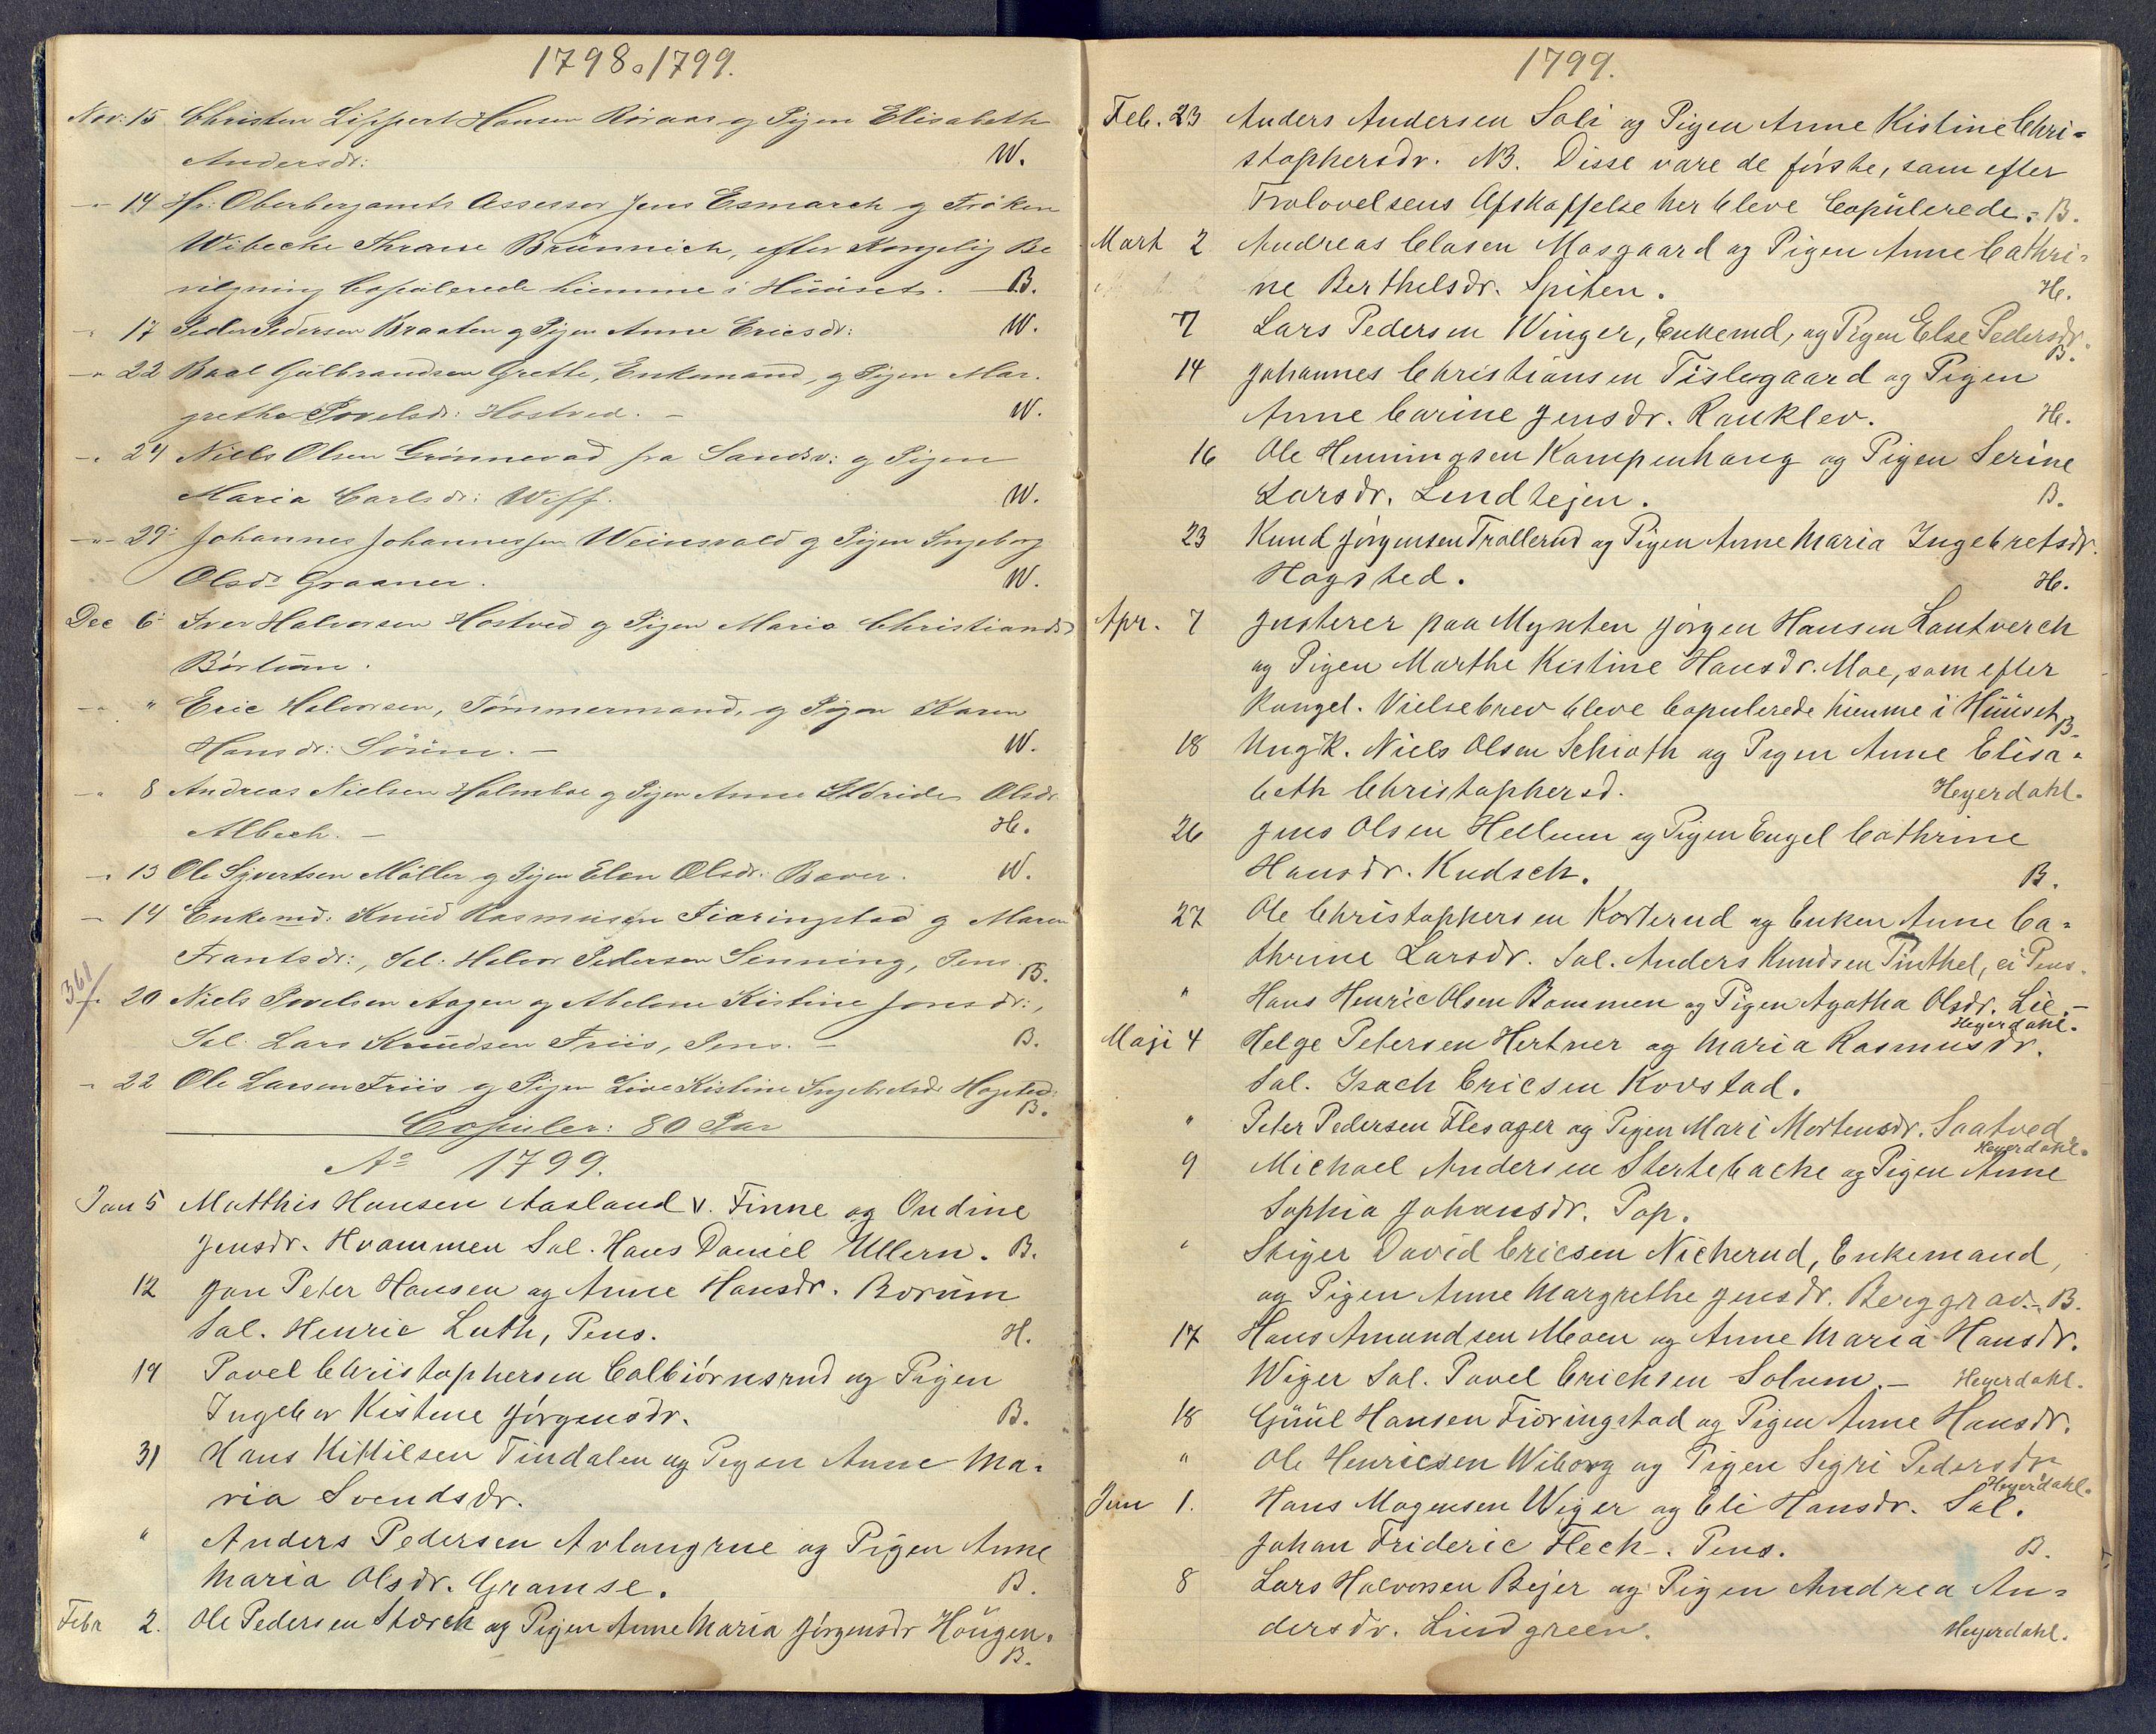 1798 o 1799.
Nov: 15 Christen Lippert Hansen Röraas og Pigen Elisabeth
Andersdr: W.
-"- 14 Hr: Oberbergamts Assessor Jens Esmarch og Fröken
Wibecke Thrane Brünnich, efter Kongelig Be
vilgning Copulerede hiemme i Huuset. B.
" 17 Peder Pedersen Braaten og Pigen Anne Ericsdr: W.
-" 22 Baal Gulbrandsen Grette, Enkemand, og Pigen Mar.
grethe Povelsdr: Hostved. - W.
-" 24 Niels Olsen Grönnevad fra Sandsv: og Pigen
Maria Carlsdr: Wiff. W.
-"- 29 Johannes Johannessen Weinsvold og Pigen Ingeborg
Olsdr Graaner. W.
Dec 6 Iver Halvorsen Hostved og Pigen Maria Christiansdr
Börtum.
-" " Eric Halvorsen, Tømmermand, og Pigen Karen
Hansdr: Sörum. - W.
-" 8 Andreas Nielsen Holmboe og Pigen Anne Olsdr
Albech. - H.
-" 13 Ole Syvertsen Möller og Pigen Elen Olsdr: Baver. W.
- 14 Enkemd: Knud Rasmusen Fiæringstad og Maren
Frantsdr:, Sal: Halvor Pedersen Senning, Pens. B.
361
-" 20 Niels Povelsen Aagen og Abelone Kistine Jonsdr:,
Sal: Lars Knudsen Friis, Pens. - B.
" 22 Ole Larsen Friis og Pigen Live Kistine Ingebretsdr Hagsted:
B.
Copuler: 80 Par
Ao 1799.
Jan 5 Matthis Hansen Aasland v. Finne og Ondine
Jensdr. Hvammen Sal. Hans Daniel Ullern. B.
12 Jan Peter Hansen og Anne Hansdr. Borum
Sal. Henric Luth, Pens. H.
19 Povel Christophersen Colbiörnsrud og Pigen
Ingebor Kistine Jörgensdr. B.
31 Hans Kittilsen Tindalen og Pigen Anne Ma-
ria Svendsdr.
" Anders Pedersen Avlangrue og Pigen Anne
Maria Olsdr. Gramse. B.
Febr 2. Ole Pedersen Storck og Pigen Anne Maria Jörgensdr Höugen.
B.
1799.
Feb. 23 Anders Andersen Soli og Pigen Anne Kistine Chri-
stophersdr. NB. Disse vare de første, som efter
Trolovelsens Afskaffelse her bleve Copulerede. - B.
Mart 2 Andreas Clasen Mosgaard og Pigen Anne Cathri-
ne Berthelsdr. Spiten. H.
7 Lars Pedersen Winger, Enkemd, og Pigen Else Pedersdr.
B.
14 Johannes Christiansen Tislegaard og Pigen
Anne Carine Jensdr. Rauklev. H.
16 Ole Henningsen Kampenhaug og Pigen Serine
Larsdr. Lendtejen. B.
23 Knud Jörgensen Trollerud og Pigen Anne Maria Ingebretsdr.
Hagsted. H.
Apr. 7 Justerer paa Mynten Jörgen Hansen Lantverck
og Pigen Marthe Kistine Hansdr. Moe, som efter
Kongel. Vielsebrev bleve Copulerede hiemme i Huuset
B.
18 Ungk. Niels Olsen Schioth og Pigen Anne Elisa-
beth Christophersd. Heyerdahl.
26 Jens Olsen Hellum og Pigen Engel Cathrine
Hansdr. Kudsch. B.
27 Ole Christophersen Korterud og Enken Anne Ca-
thrine Larsdr. Sal. Anders Knudsen Pinthel, ei Pens.
" Hans Henric Olsen Bommen og Pigen Agatha Olsdr. Lie. -
Heyerdahl.
Maji 4 Helge Petersen Hertner og Maria Rasmusdr.
Sal. Isach Ericsen Kovstad.
" Peter Pedersen Flesager og Pigen Mari Mortensdr. Saatved
Heyerdahl.
9 Michael Andersen Stertebacke og Pigen Anne
Sophia Johansdr. Pop.
" Stiger David Ericsen Nicherud, Enkemand,
og Pigen Anne Margrethe Jensdr. Berggrav. - B.
17 Hans Amundsen Moen og Anne Maria Hansdr.
Wiger Sal. Povel Erichsen Solum. - Heyerdahl.
18 Guul Hansen Fiæringstad og Pigen Anne Hansdr.
" Ole Henricsen Wiborg og Pigen Segri Pedersdr
Heyerdahl.
Jun 1. Hans Mogensen Weger og Eli Hansdr. Sal.
Johan Frideric Flech. Pens. B.
8 Lars Halvorsen Bejer og Pigen Andrea An-
dersdr. Lindgreen. Heyerdahl.